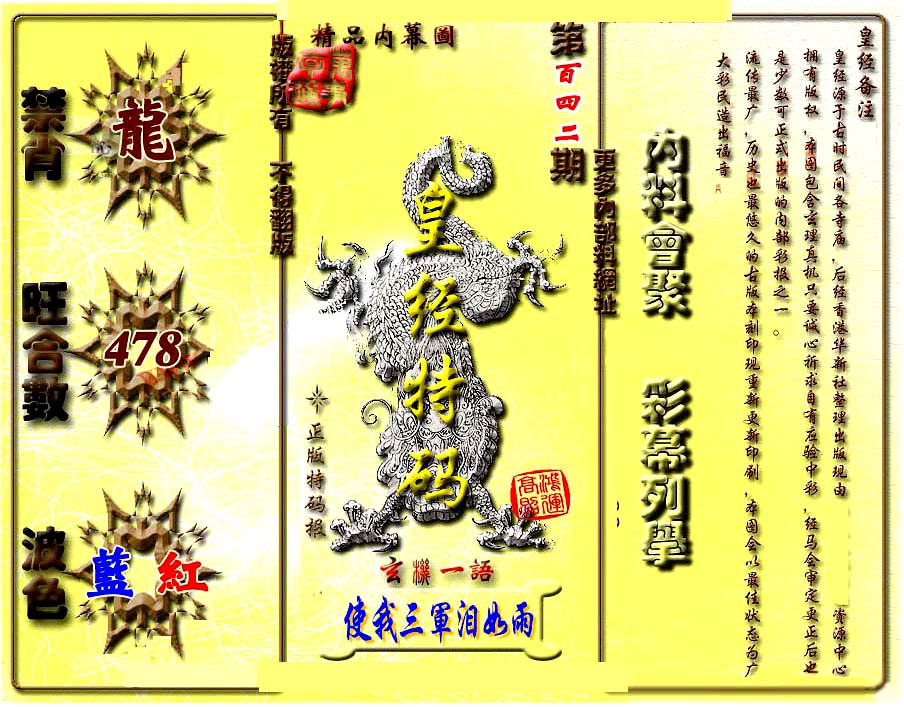 禁肖
龍
旺合數
478
波色
藍 紅
版權所有 不得翻版
精品内幕圖
第百四二期
皇经特码
正版特码报
鴻運高照
玄機一語
使我三軍泪如雨
更多内部料網址
内料會聚
彩幕列舉
皇经备注
皇经源于古时民间各寺庙,后经香港华新社整理出版现由 资源中心
拥有版权,本图包含玄理真机只要诚心祈求自有应验中彩,经马会审定更正后也
是少数可正式出版的内部彩报之一。
流传最广,历史也最悠久的古版本刻印现重新更新印刷,本图会以最佳状态为广
大彩民造出福音